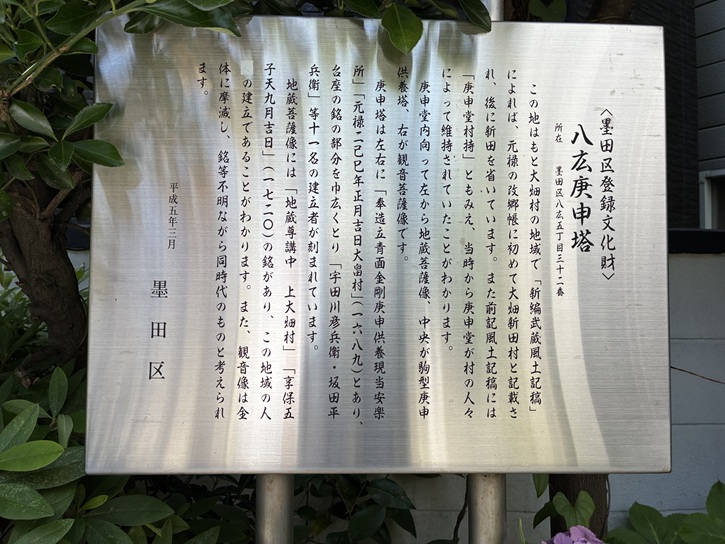 〈墨田区登録文化財〉
八広庚申塔
所在　墨田区八広五丁目三十二番
この地はもと大畑村の地域で「新編武蔵風土記稿」
によれば、元禄の改郷帳に初めて大畑新田村と記載さ
れ、後に新田を省いています。また前記風土記稿には
「庚申堂村持」ともみえ、当時から庚申堂が村の人々
によって維持されていたことがわかります。
庚申堂内向って左から地蔵菩薩像、中央が駒型庚申
供養塔、右が観音菩薩像です。
庚申塔は左右に「奉造立青面金剛庚申供養現当安楽
所」「元禄二己巳年正月吉日大畠村」(一六八九)とあり、
台座の銘の部分を巾広くとり「宇田川彦兵衛・坂田平
兵衛」等十一名の建立者が刻まれています。
地蔵菩薩像には「地蔵尊講中　上大畑村」「享保五
子天九月吉日」(一七二〇)の銘があり、この地域の人
々の建立であることがわかります。また、観音像は全
体に摩滅し、銘等不明ながら同時代のものと考えられ
ます。
平成五年三月
墨田区